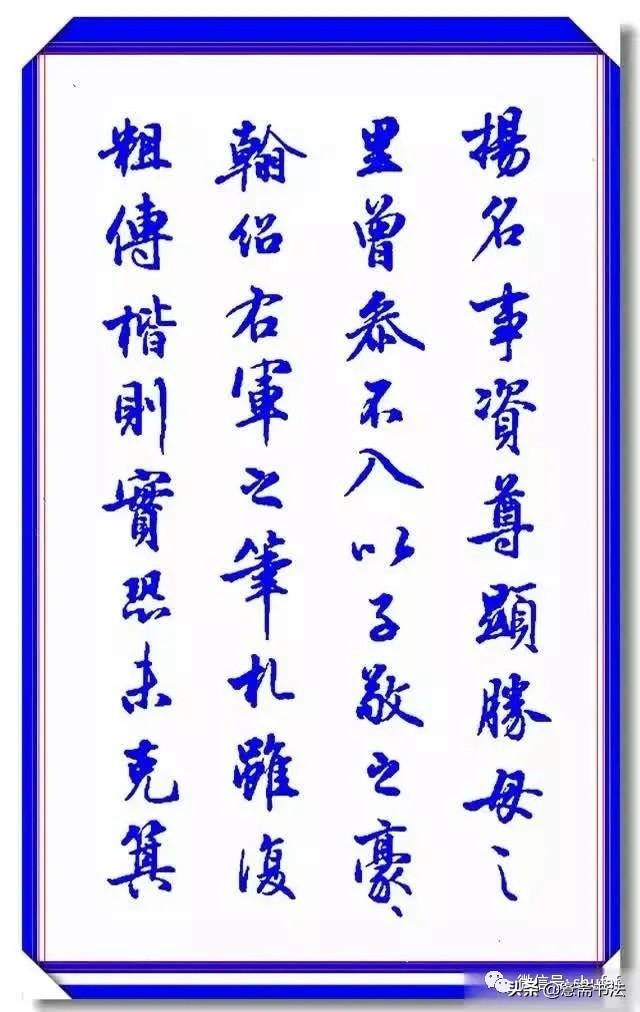 揚名事資尊顯勝母之
里曾叅不入以子敬之豪
翰紹右軍之筆札雖復
粗傳楷則實恐未克箕
微信号: shufaf
头条@意斋书法